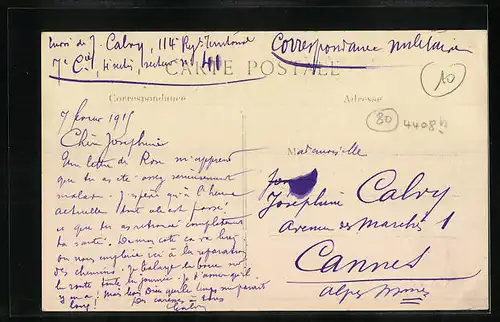 Envoi de J. Calvy, 114e Rgt Territorial
7e Cie, secteur no 41
Correspondance militaire
CARTE POSTALE
10
Correspondance
Adresse
80
4408
7 février 1915
Chère Joséphine
Une lettre de Rose m'apprend
que tu as été assez sérieusement
malade. J'espère qu'à l'heure
actuelle tout cela est passé
ce que tu as retrouvé complètement
ta santé. De mon côté ça va bien
on nous emploie ici à la réparation
des chemins. Je balaye la boue sur
la route toute la journée.
y en a! mais bon Dieu que le temps me paraît
long! Des caresses à tous
Calvy
Mademoiselle
Joséphine Calvy
Avenue des Marchés 1
Cannes
Alpes Mmes